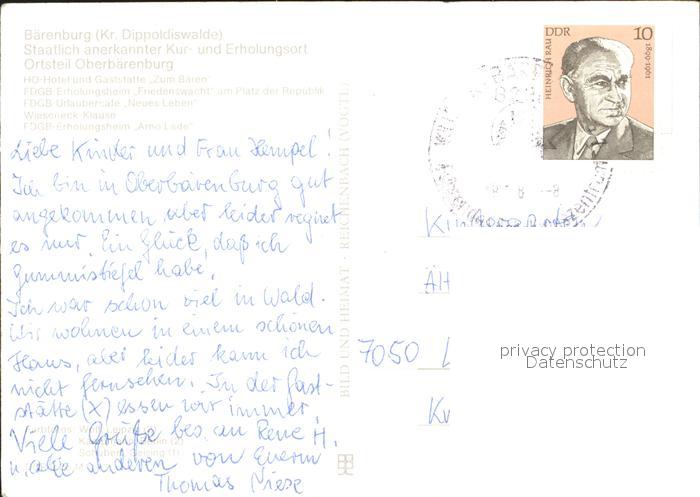 Bärenburg (Kr. Dippoldiswalde)
Staatlich anerkannter Kur- und Erholungsort
Ortsteil Oberbärenburg
HO-Hotel und Gaststätte „Zum Bären"
FDGB-Erholungsheim „Friedenswacht" am Platz der Republik
FDGB-Urlaubercafe „Neues Leben"
Wieseneck-Klause
FDGB-Erholungsheim „Arno Lade"
Liebe Kinder und Frau Hempel!
Ich bin in Oberbärenburg gut
angekommen, aber leider regnet
es nur. Ein Glück, daß ich
Gummistiefel habe.
Ich war schon viel in Wald.
Wir wohnen in einem schönen
Haus, aber leider kann ich
nicht fernsehen. In der Gast-
stätte (X) essen wir immer.
Viele Grüße bes. an Rene H.
u. alle anderen von Euerm
Thomas Niese
BILD UND HEIMAT · REICHENBACH (VOGTL)
DDR 10
HEINRICH RAU
1899-1961
7050 L
privacy protection
Datenschutz